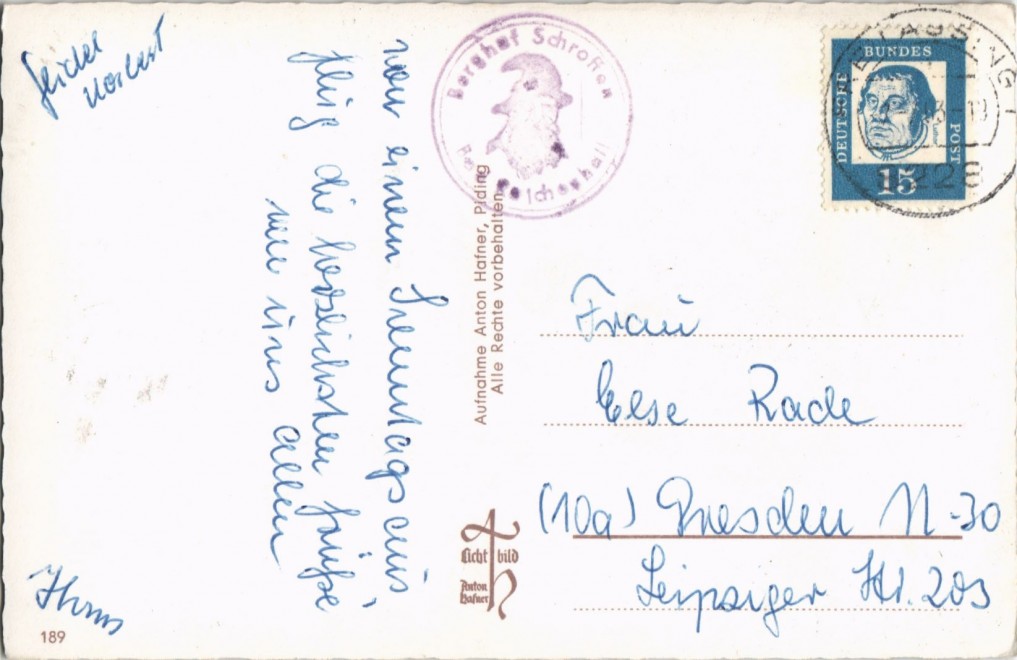 von einem Sonntagsaus
flug die herzlichsten Grüße
von uns allen
Hans
189
Berghof Schroffen
Reichenhall
Aufnahme Anton Hafner, Piding
Alle Rechte vorbehalten
Licht bild
Anton
Hafner
DEUTSCHE
BUNDES
POST
15
Frau
Else Rade
(10a) Dresden N-30
Leipziger Str. 203